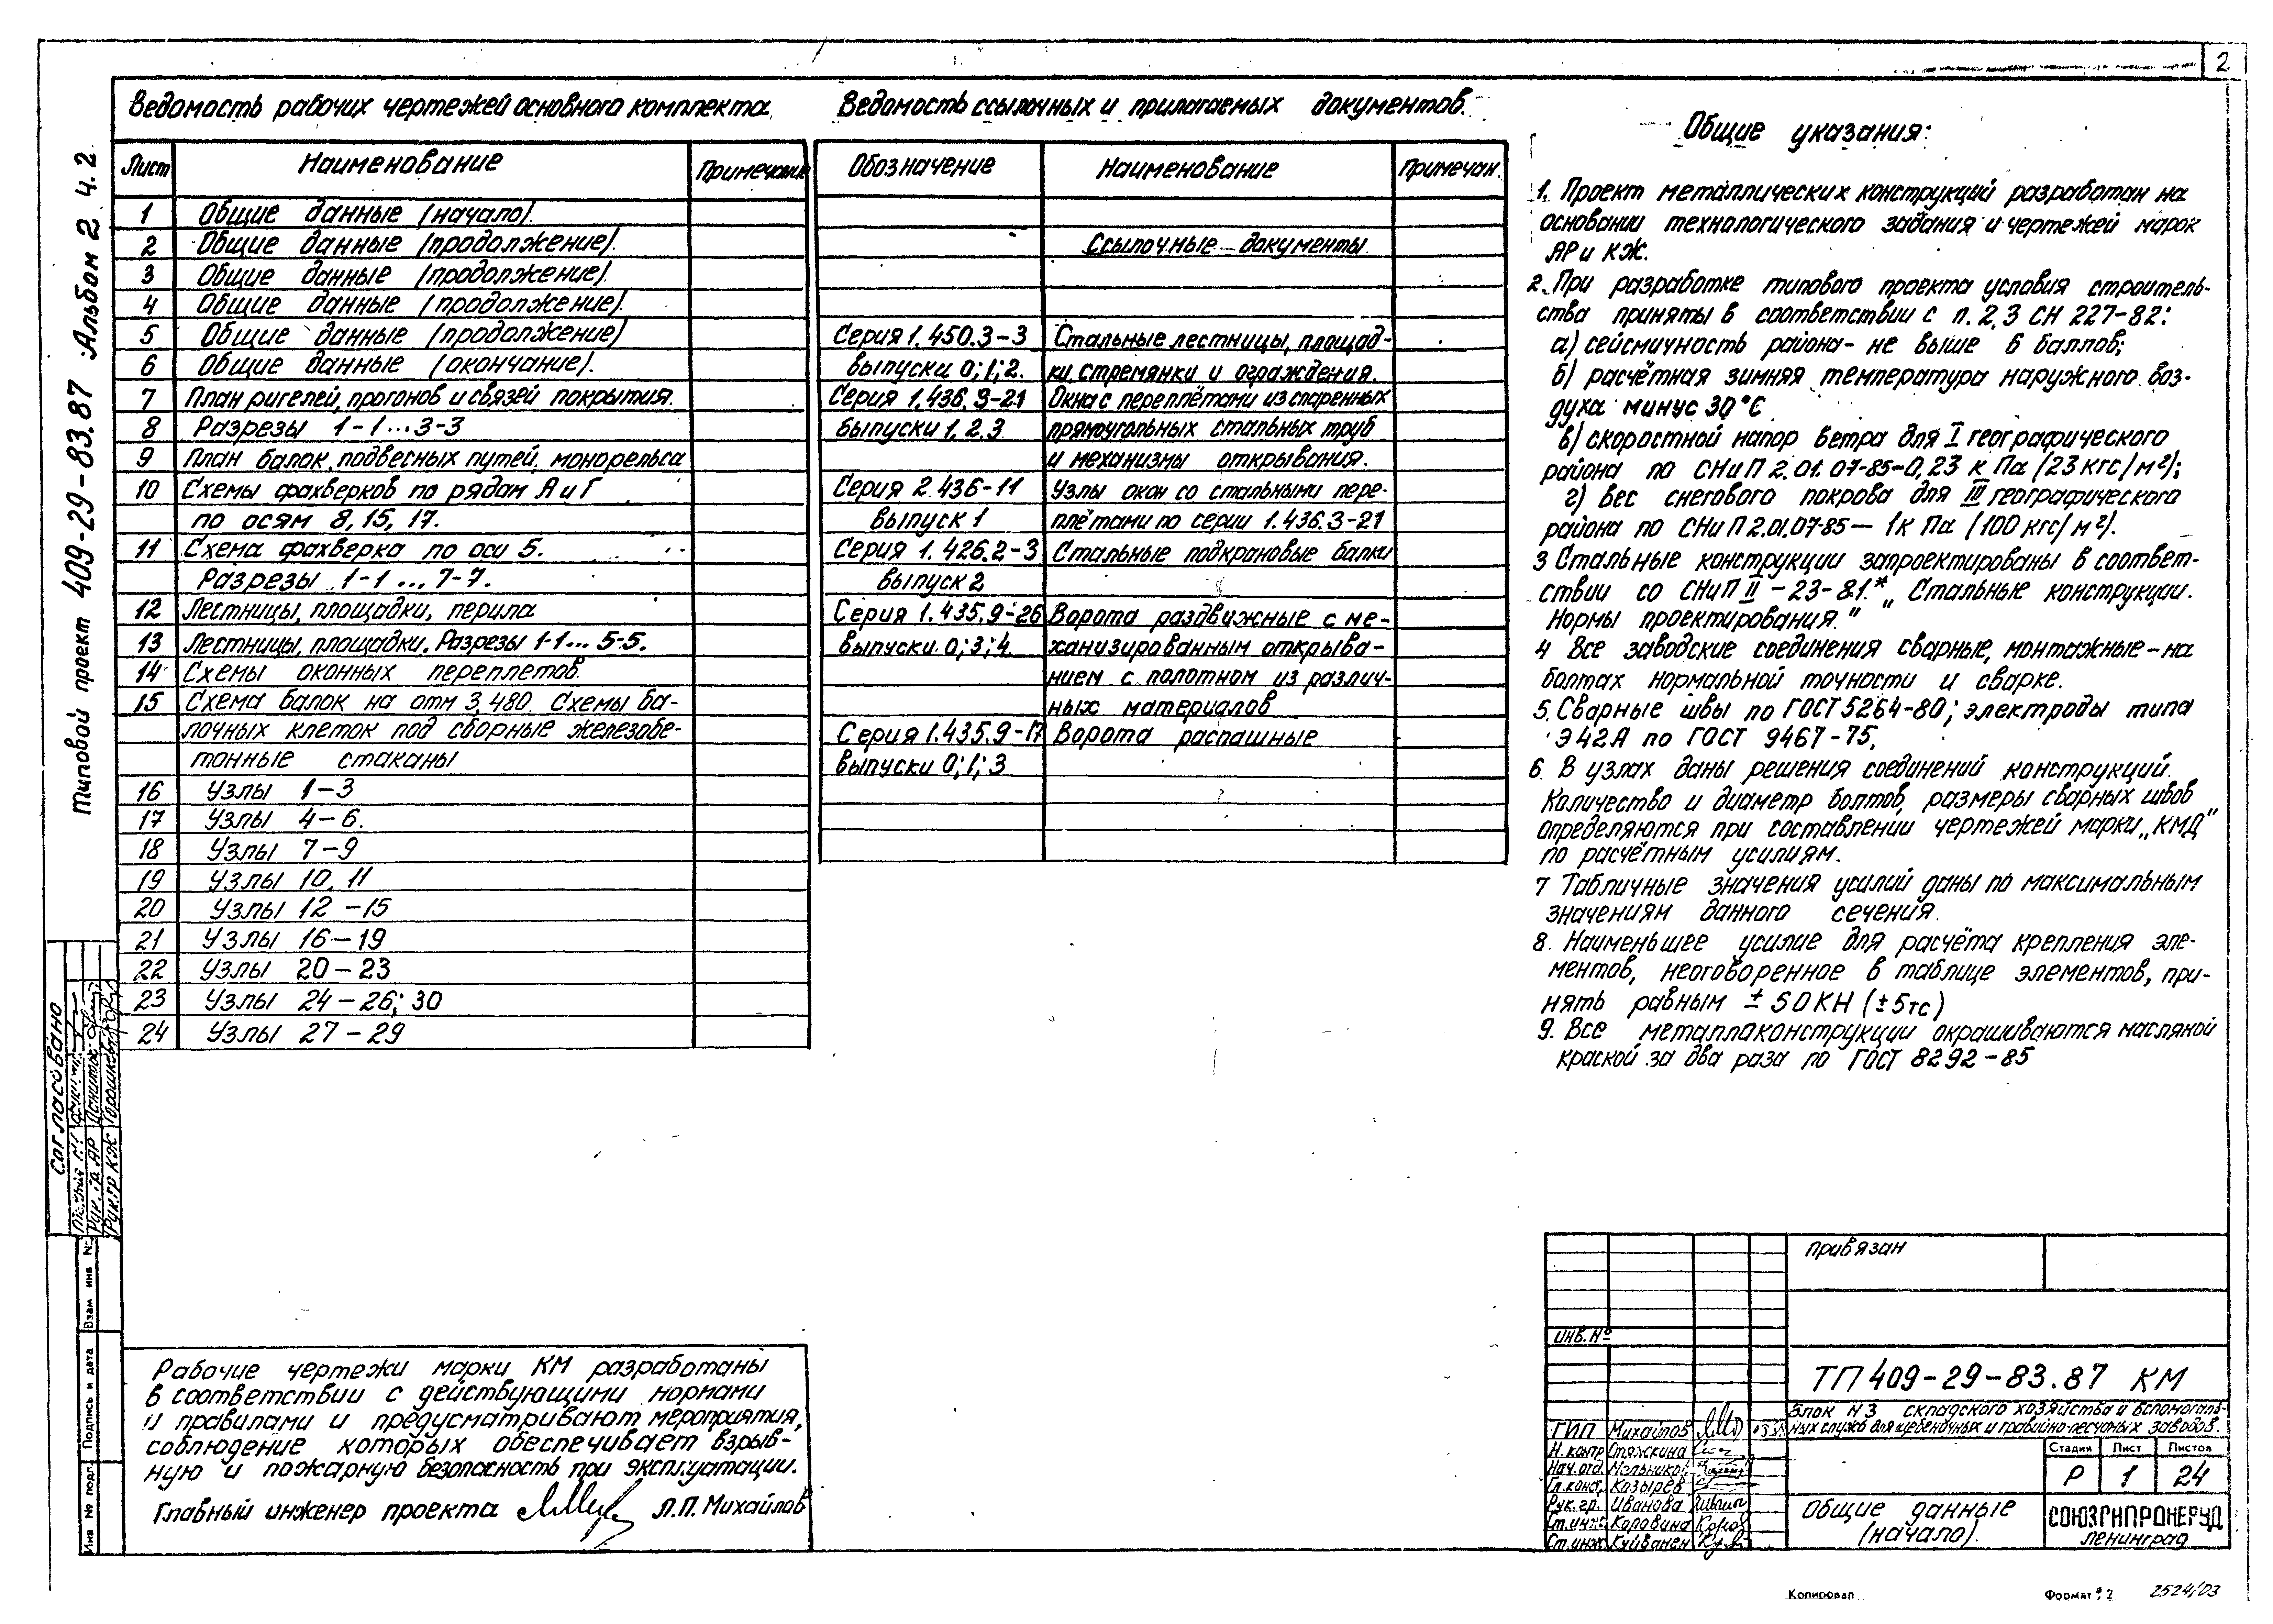 2
Типовой проект 409-29-83.87 Альбом 2 ч.2
Ведомость рабочих чертежей основного комплекта
Лист Наименование Примечание
1 Общие данные (начало).
2 Общие данные (продолжение).
3 Общие данные (продолжение).
4 Общие данные (продолжение).
5 Общие данные (продолжение)
6 Общие данные (окончание).
7 План ригелей, прогонов и связей покрытия.
8 Разрезы 1-1...3-3
9 План балок подвесных путей, монорельса
10 Схемы фахверков по рядам А и Г
по осям 8, 15, 17.
11 Схема фахверка по оси 5.
Разрезы 1-1...7-7.
12 Лестницы, площадки, перила
13 Лестницы, площадки. Разрезы 1-1...5-5.
14 Схемы оконных переплетов.
15 Схема балок на отм 3,480. Схемы ба-
лочных клеток под сборные железобе-
тонные стаканы
16 Узлы 1-3
17 Узлы 4-6.
18 Узлы 7-9
19 Узлы 10, 11
20 Узлы 12-15
21 Узлы 16-19
22 Узлы 20-23
23 Узлы 24-26; 30
24 Узлы 27-29
Ведомость ссылочных и прилагаемых документов.
Обозначение Наименование Примечан.
Ссылочные документы
Серия 1.450.3-3 Стальные лестницы, площад-
выпуски 0; 1; 2. ки, стремянки и ограждения.
Серия 1.436.3-21 Окна с переплётами из спаренных
выпуски 1, 2, 3 прямоугольных стальных труб
и механизмы открывания.
Серия 2.436-11 Узлы окон со стальными пере-
выпуск 1 плётами по серии 1.436.3-21
Серия 1.426.2-3 Стальные подкрановые балки
выпуск 2
Серия 1.435.9-26 Ворота раздвижные с ме-
выпуски 0; 3; 4. ханизированным открыва-
нием с полотном из различ-
ных материалов
Серия 1.435.9-17 Ворота распашные
выпуски 0; 1; 3
Общие указания:
1. Проект металлических конструкций разработан на
основании технологического задания и чертежей марок
АР и КЖ.
2. При разработке типового проекта условия строитель-
ства приняты в соответствии с п. 2,3 СН 227-82:
а) сейсмичность района- не выше 6 баллов;
б) расчётная зимняя температура наружного воз-
духа минус 30°С
в) скоростной напор ветра для I географического
района по СНиП 2.01.07-85-0,23 кПа (23 кгс/м²);
г) вес снегового покрова для III географического
района по СНиП 2.01.07-85 — 1кПа (100 кгс/м²).
3 Стальные конструкции запроектированы в соответ-
ствии со СНиП II-23-81.* „Стальные конструкции.
Нормы проектирования."
4 Все заводские соединения сварные, монтажные-на
болтах нормальной точности и сварке.
5. Сварные швы по ГОСТ 5264-80; электроды типа
Э42А по ГОСТ 9467-75.
6. В узлах даны решения соединений конструкций.
Количество и диаметр болтов, размеры сварных швов
определяются при составлении чертежей марки „КМД"
по расчётным усилиям.
7 Табличные значения усилий даны по максимальным
значениям данного сечения.
8. Наименьшее усилие для расчёта крепления эле-
ментов, неоговоренное в таблице элементов, при-
нять равным ± 50КН (±5тс)
9. Все металлоконструкции окрашиваются масляной
краской за два раза по ГОСТ 8292-85
Согласовано
Рук. гр АР
Рук. гр КЖ
Взам инв №
Подпись и дата
Инв № подл.
Рабочие чертежи марки КМ разработаны
в соответствии с действующими нормами
и правилами и предусматривают мероприятия,
соблюдение которых обеспечивает взрыв-
ную и пожарную безопасность при эксплуатации.
Главный инженер проекта Л.П. Михайлов
привязан
инв. №
ТП 409-29-83.87 КМ
Блок №3 складского хозяйства и вспомогатель-
ных служб для щебеночных и гравийно-песчаных заводов.
ГИП Михайлов
Н. контр Стяжкина
Нач. отд.
Гл. конст. Козырев
Рук. гр. Иванова
Ст. инж. Коровина
Ст. инж.
Стадия Лист Листов
Р 1 24
Общие данные
(начало).
СОЮЗГИПРОНЕРУД
Ленинград
Копировал
Формат 2
2524/03